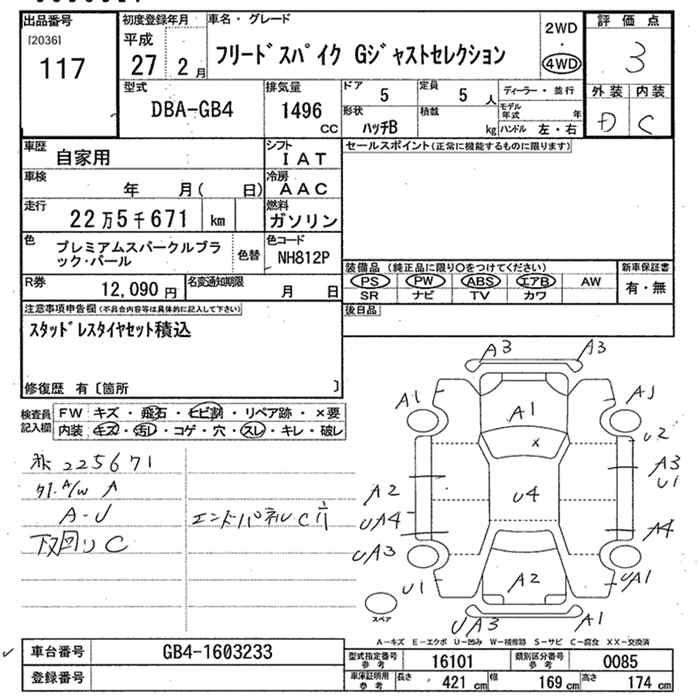 出品番号
[2036]
117
初度登録年月
平成
27 2月
車名・グレード
フリードスパイク Gジャストセレクション
2WD
・
4WD
評価点
3
外装 内装
D C
型式
DBA-GB4
排気量
1496
CC
ドア
5
定員
5 人
ディーラー・並行
形状
ハッチB
積載
kg
モデル年式
年
ハンドル 左・右
車歴
自家用
シフト
IAT
セールスポイント(正常に機能するものに限ります)
車検
年 月( 日)
冷房
AAC
走行
22万5千671 km
燃料
ガソリン
色
プレミアムスパークルブラ
ック・パール
色替
色コード
NH812P
装備品 (純正品に限り○をつけてください)
PS PW ABS エアB AW
SR ナビ TV カワ
新車保証書
有・無
R券
12,090円
名変通知期限
月 日
後日品
注意事項申告欄(不具合内容等は具体的に記入して下さい)
スタッドレスタイヤセット積込
修復歴 有〔箇所 〕
検査員
記入欄
FW キズ・飛石・ヒビ割・リペア跡・×要
内装 キズ・汚レ・コゲ・穴・スレ・キレ・破レ
225671
A/W A
A-U
下回りC
エンドパネルC
A3 A3
A1 A1 A1
U2
X
A3
U1
A2
U4
UA4 A4
UA3 UA1
U1 A2
UA3 A1
スペア
A-キズ E-エクボ U-凹み W-補修跡 S-サビ C-腐食 XX-交換済
車台番号
GB4-1603233
登録番号
型式指定番号
参考
16101
類別区分番号
参考
0085
車庫証明用
参考
長さ
421 cm
幅
169 cm
高さ
174 cm